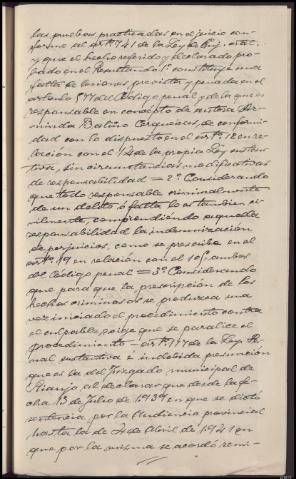 las pruebas practicadas en el juicio con-
forme al artº 741 de la Ley de Enj. crim.
y que el hecho referido y declarado pro-
bado en el Resultando 1º constituye una
falta de lesiones, prevista y penada en el
artículo del Código penal y de la que es
responsable en concepto de autora Her-
minda de conformi-
dad con lo dispuesto en el artº 12 en re-
lación con el 14 de la propia Ley sustan-
tiva, sin circunstancias modificativas
de responsabilidad = 2º Considerando
que todo responsable criminalmente
de un delito o falta lo es tambien ci-
vilmente, comprendiendo aquella
responsabilidad la indemnización
de perjuicios, como se prescribe en el
artº 19 en relación con el ambos
del Código penal = 3º Considerando
que para que la prescripcion de los
hechos criminosos se produzca una
vez iniciado el procedimiento contra
el culpable exige que se paralice el
procedimiento - artº de la Ley Pe-
nal sustantiva e indebida presunción
que es la del Juzgado municipal de
al declarar que desde la fe-
cha 13 de Julio de 1939 en que se dictó
sentencia por la Audiencia provincial
hasta la de 24 de Abril de 1941 en
que por la misma se acordó remi-